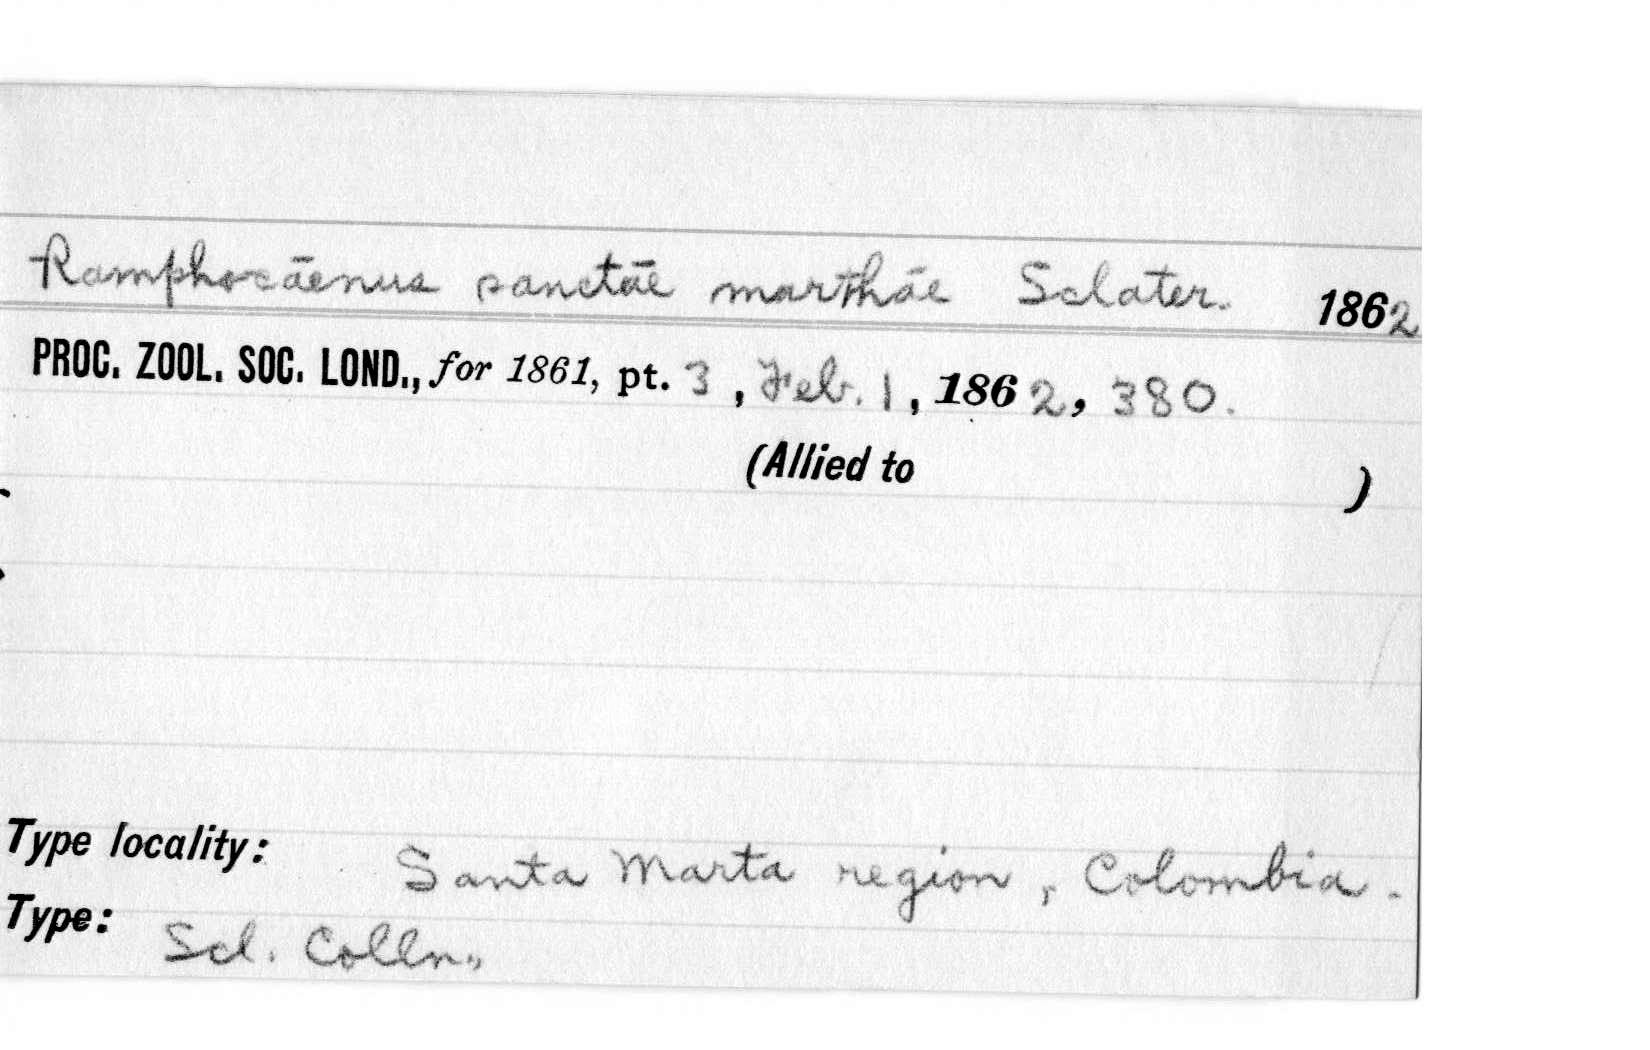 Ramphocāenus sanctāe marthāe Sclater. 1862
PROC. ZOOL. SOC. LOND., for 1861, pt. 3, Feb. 1, 1862, 380.
(Allied to )
Type locality: Santa Marta region, Colombia.
Type: Scl. Colln.,